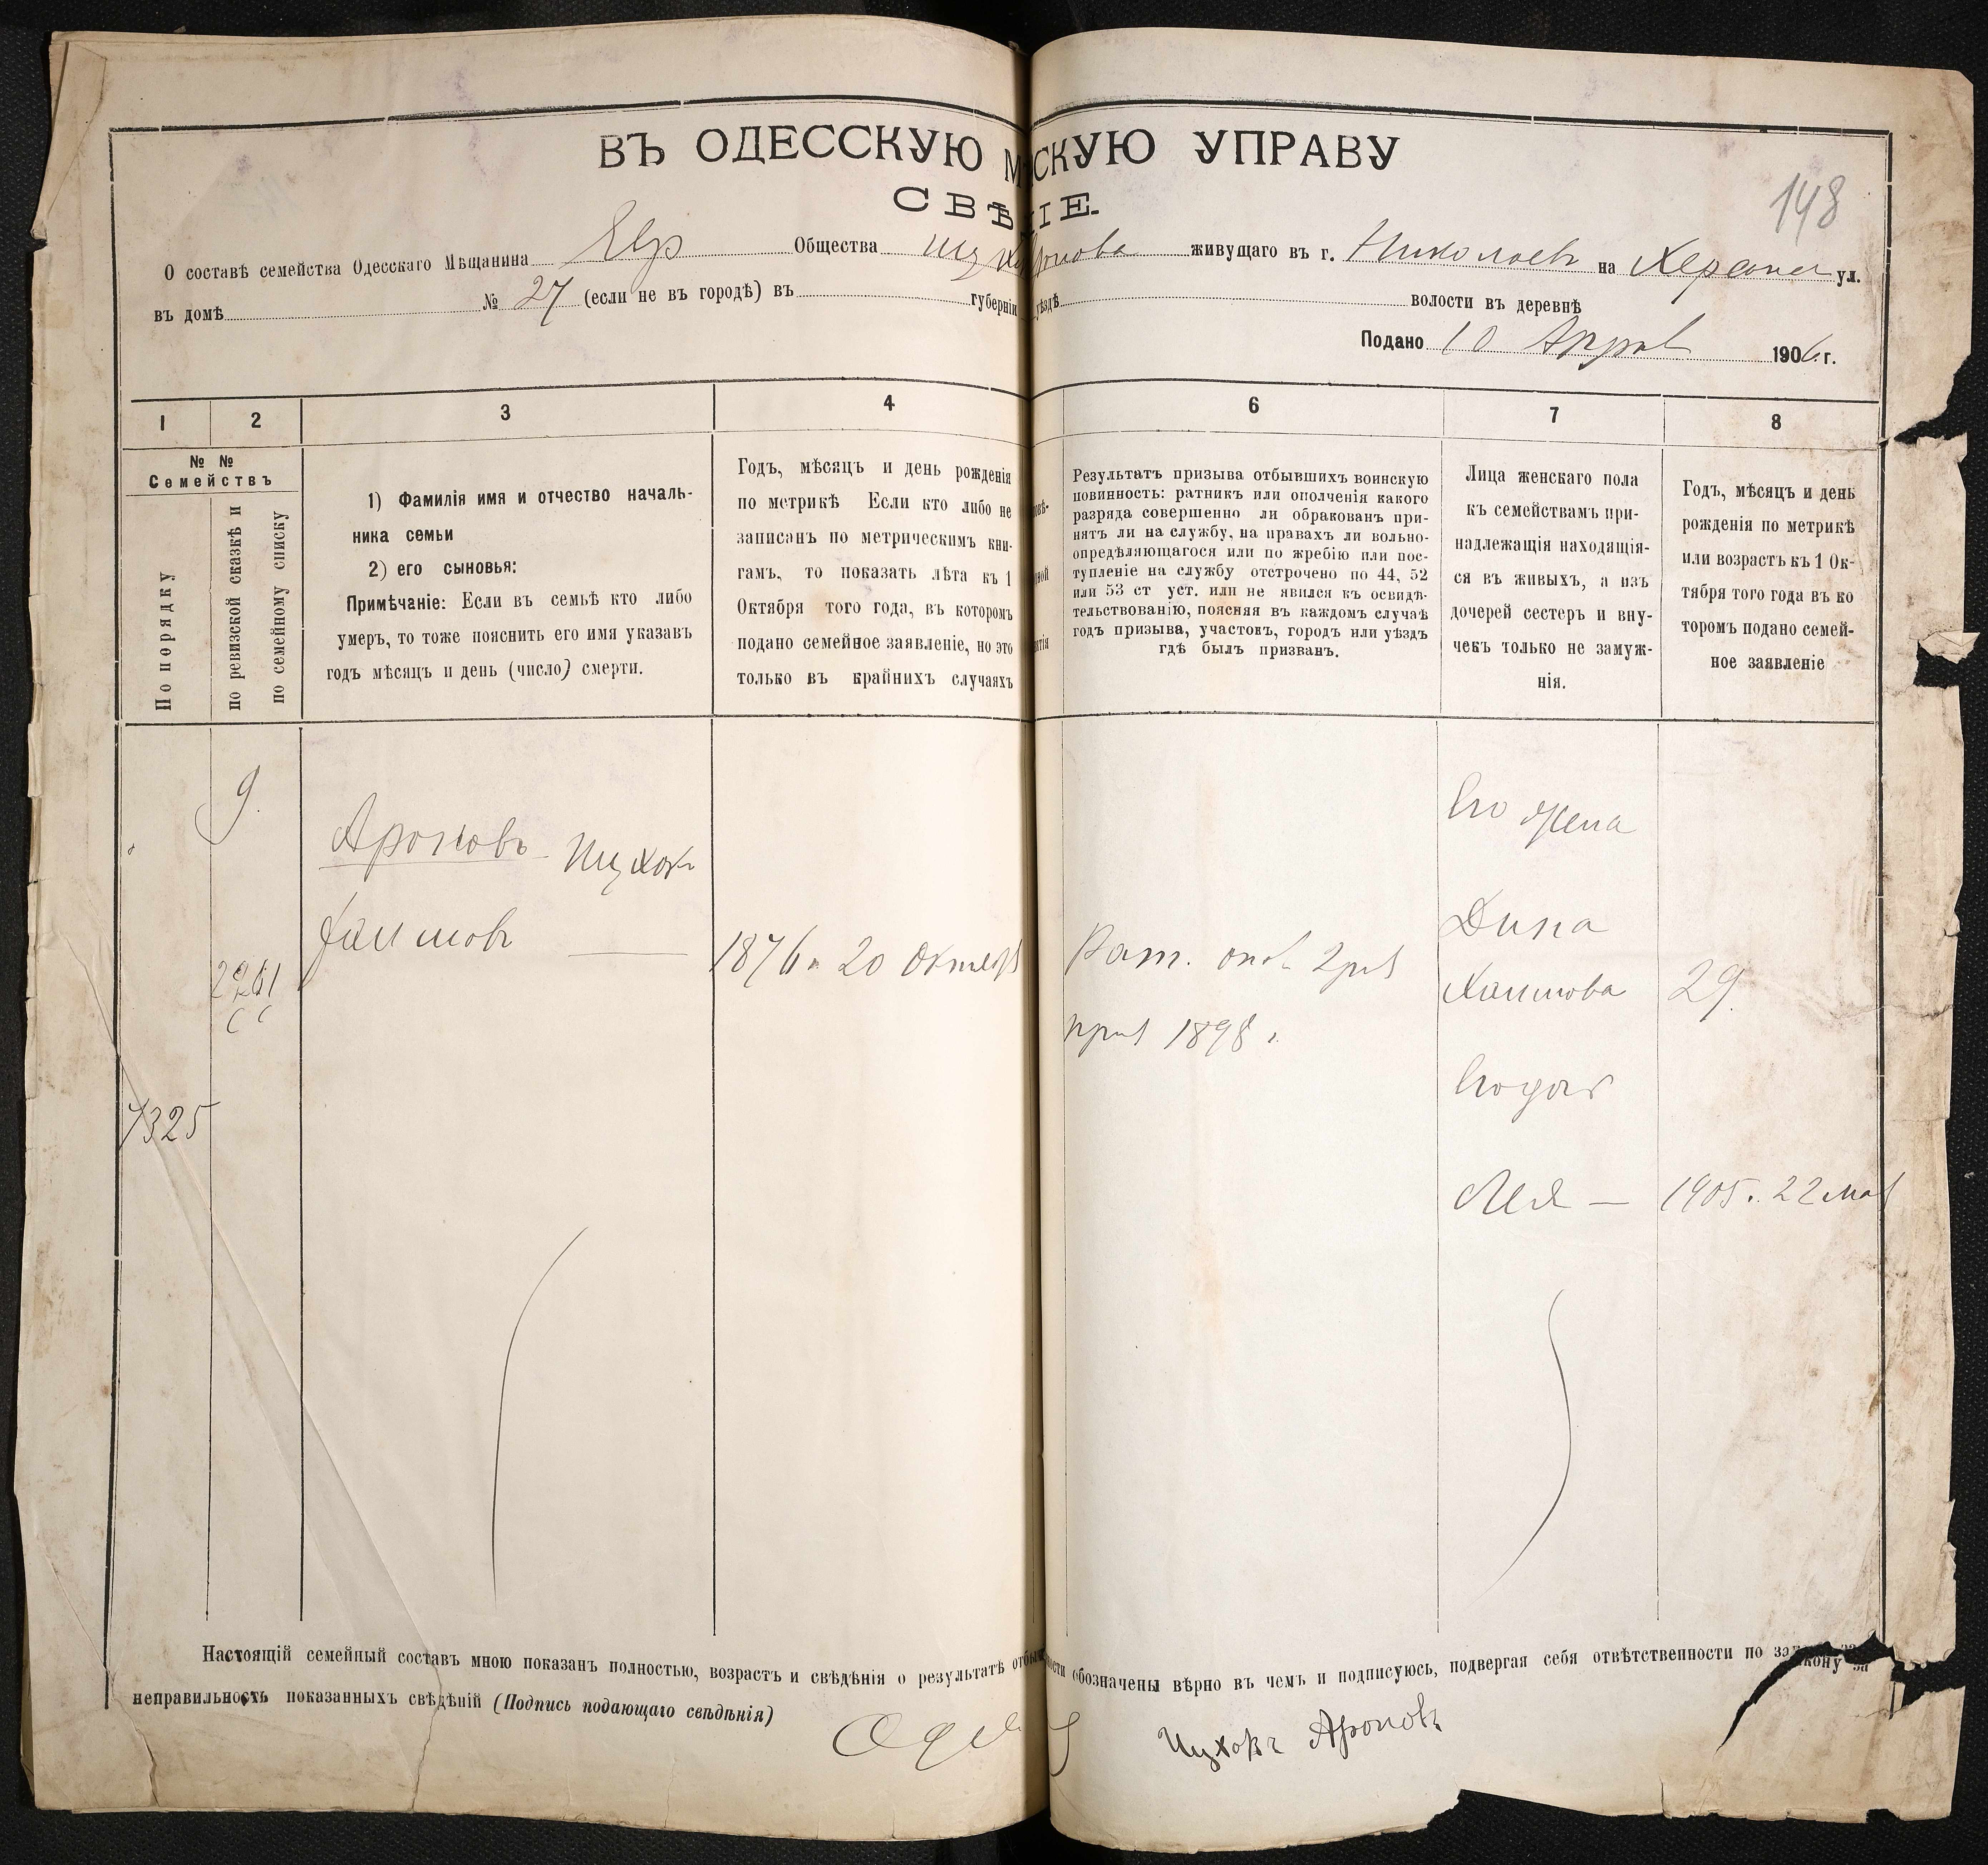 ВЪ ОДЕССКУЮ М СКУЮ УПРАВУ
СВѢ IE.
148
О составѣ семейства Одесскаго Мѣщанина Евр Общества Ицх Аронова живущаго въ г. Николаевъ на Херсонск ул.
въ домѣ № 27 (если не въ городѣ) въ губерніи уѣздѣ волости въ деревнѣ
Подано 10 Апрѣл 1906 г.
1 2 3 4 6 7 8
№ №
Семействъ
По порядку
по ревизской сказкѣ и
по семейному списку
1) Фамилія имя и отчество началь-
ника семьи
2) его сыновья:
Примѣчаніе: Если въ семьѣ кто либо
умеръ, то тоже пояснить его имя указавъ
годъ мѣсяцъ и день (число) смерти.
Годъ, мѣсяцъ и день рожденія
по метрикѣ Если кто либо не
записанъ по метрическимъ кни-
гамъ, то показать лѣта къ 1
Октября того года, въ которомъ
подано семейное заявленіе, но это
только въ крайнихъ случаяхъ
Результатъ призыва отбывшихъ воинскую
повинность: ратникъ или ополченія какого
разряда совершенно ли обракованъ при-
нятъ ли на службу, на правахъ ли вольно-
опредѣляющагося или по жребію или пос-
тупленіе на службу отстрочено по 44, 52
или 53 ст уст. или не явился къ освидѣ-
тельствованію, поясняя въ каждомъ случаѣ
годъ призыва, участокъ, городъ или уѣздъ
гдѣ былъ призванъ.
Лица женскаго пола
къ семействамъ при-
надлежащія находящія-
ся въ живыхъ, а изъ
дочерей сестеръ и вну-
чекъ только не замуж-
нія.
Годъ, мѣсяцъ и день
рожденія по метрикѣ
или возрастъ къ 1 Ок-
тября того года въ ко
торомъ подано семей-
ное заявленіе
9.
Ароновъ Ицхокъ
Хаимовъ
2261
1876 г. 20 Октябр
Рат. опол 2 раз
приз 1898 г.
7325
Его жена
Дина
Хаимова 29
Его дочь
Лея — 1905 г. 22 мая
Настоящій семейный составъ мною показанъ полностью, возрастъ и свѣдѣнія о результатѣ отбы ости обозначены вѣрно въ чемъ и подписуюсь, подвергая себя отвѣтственности по закону за
неправильность показанныхъ свѣдѣній (Подпись подающаго свѣдѣнія)
Ицхокъ Ароновъ